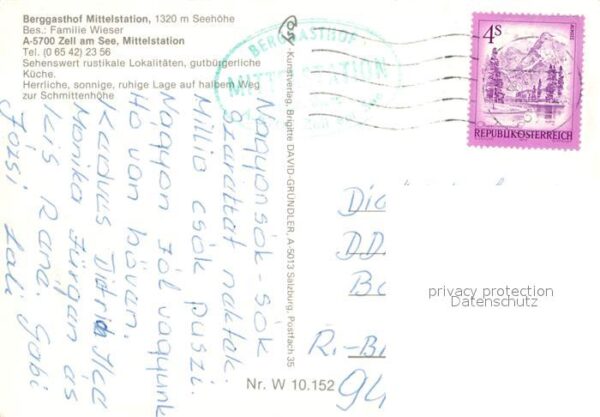 Berggasthof Mittelstation, 1320 m Seehöhe
Bes.: Familie Wieser
A-5700 Zell am See, Mittelstation
Tel. (0 65 42) 23 56
Sehenswert rustikale Lokalitäten, gutbürgerliche
Küche.
Herrliche, sonnige, ruhige Lage auf halbem Weg
zur Schmittenhöhe
BERGGASTHOF
MITTELSTATION
Kunstverlag, Brigitte DAVID-GRUNDLER, A-5013 Salzburg, Postfach 35
4S
REPUBLIK ÖSTERREICH
Nagyonsok-sok
Millio csók puszi.
Nagyon jól vagyunk
Hó van bőven.
Monika Jürgen és
kis Gabi
Józsi Lali
DD
R.-
94
privacy protection
Datenschutz
Nr. W 10.152